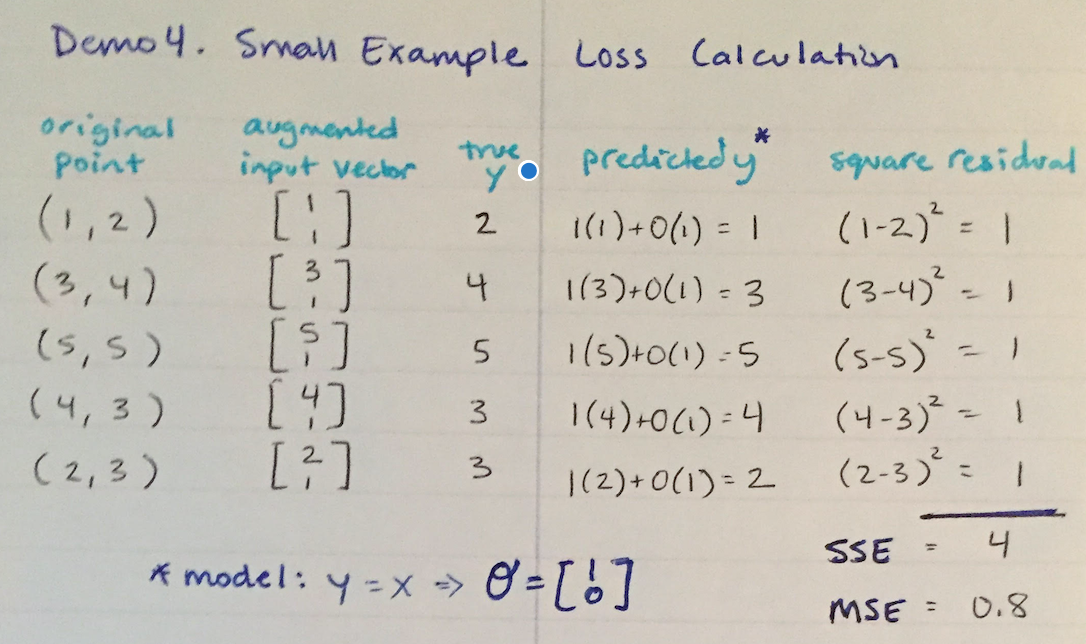 Demo 4. Small Example Loss Calculation
original point augmented input vector true y predicted y* square residual
(1, 2) [1 1] 2 1(1)+0(1) = 1 (1-2)² = 1
(3, 4) [3 1] 4 1(3)+0(1) = 3 (3-4)² = 1
(5, 5) [5 1] 5 1(5)+0(1) = 5 (5-5)² = 1
(4, 3) [4 1] 3 1(4)+0(1) = 4 (4-3)² = 1
(2, 3) [2 1] 3 1(2)+0(1) = 2 (2-3)² = 1
SSE = 4
* model: y = x => θ = [1 0]
MSE = 0.8